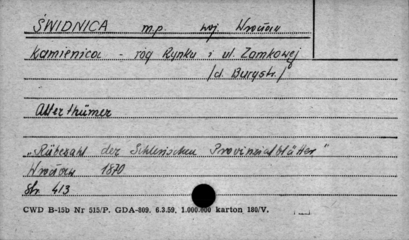 ŚWIDNICA m.p. woj Wrocław
Kamienica - róg Rynku i ul. Zamkowej
/d. Burgstr./
Alterthümer
„Rübezahl der Schlesischen Provinzialblätter"
Wrocław 1870
str. 413
CWD B-15b Nr 515/P. GDA-809. 6.3.59. 1.000.000 karton 180/V.